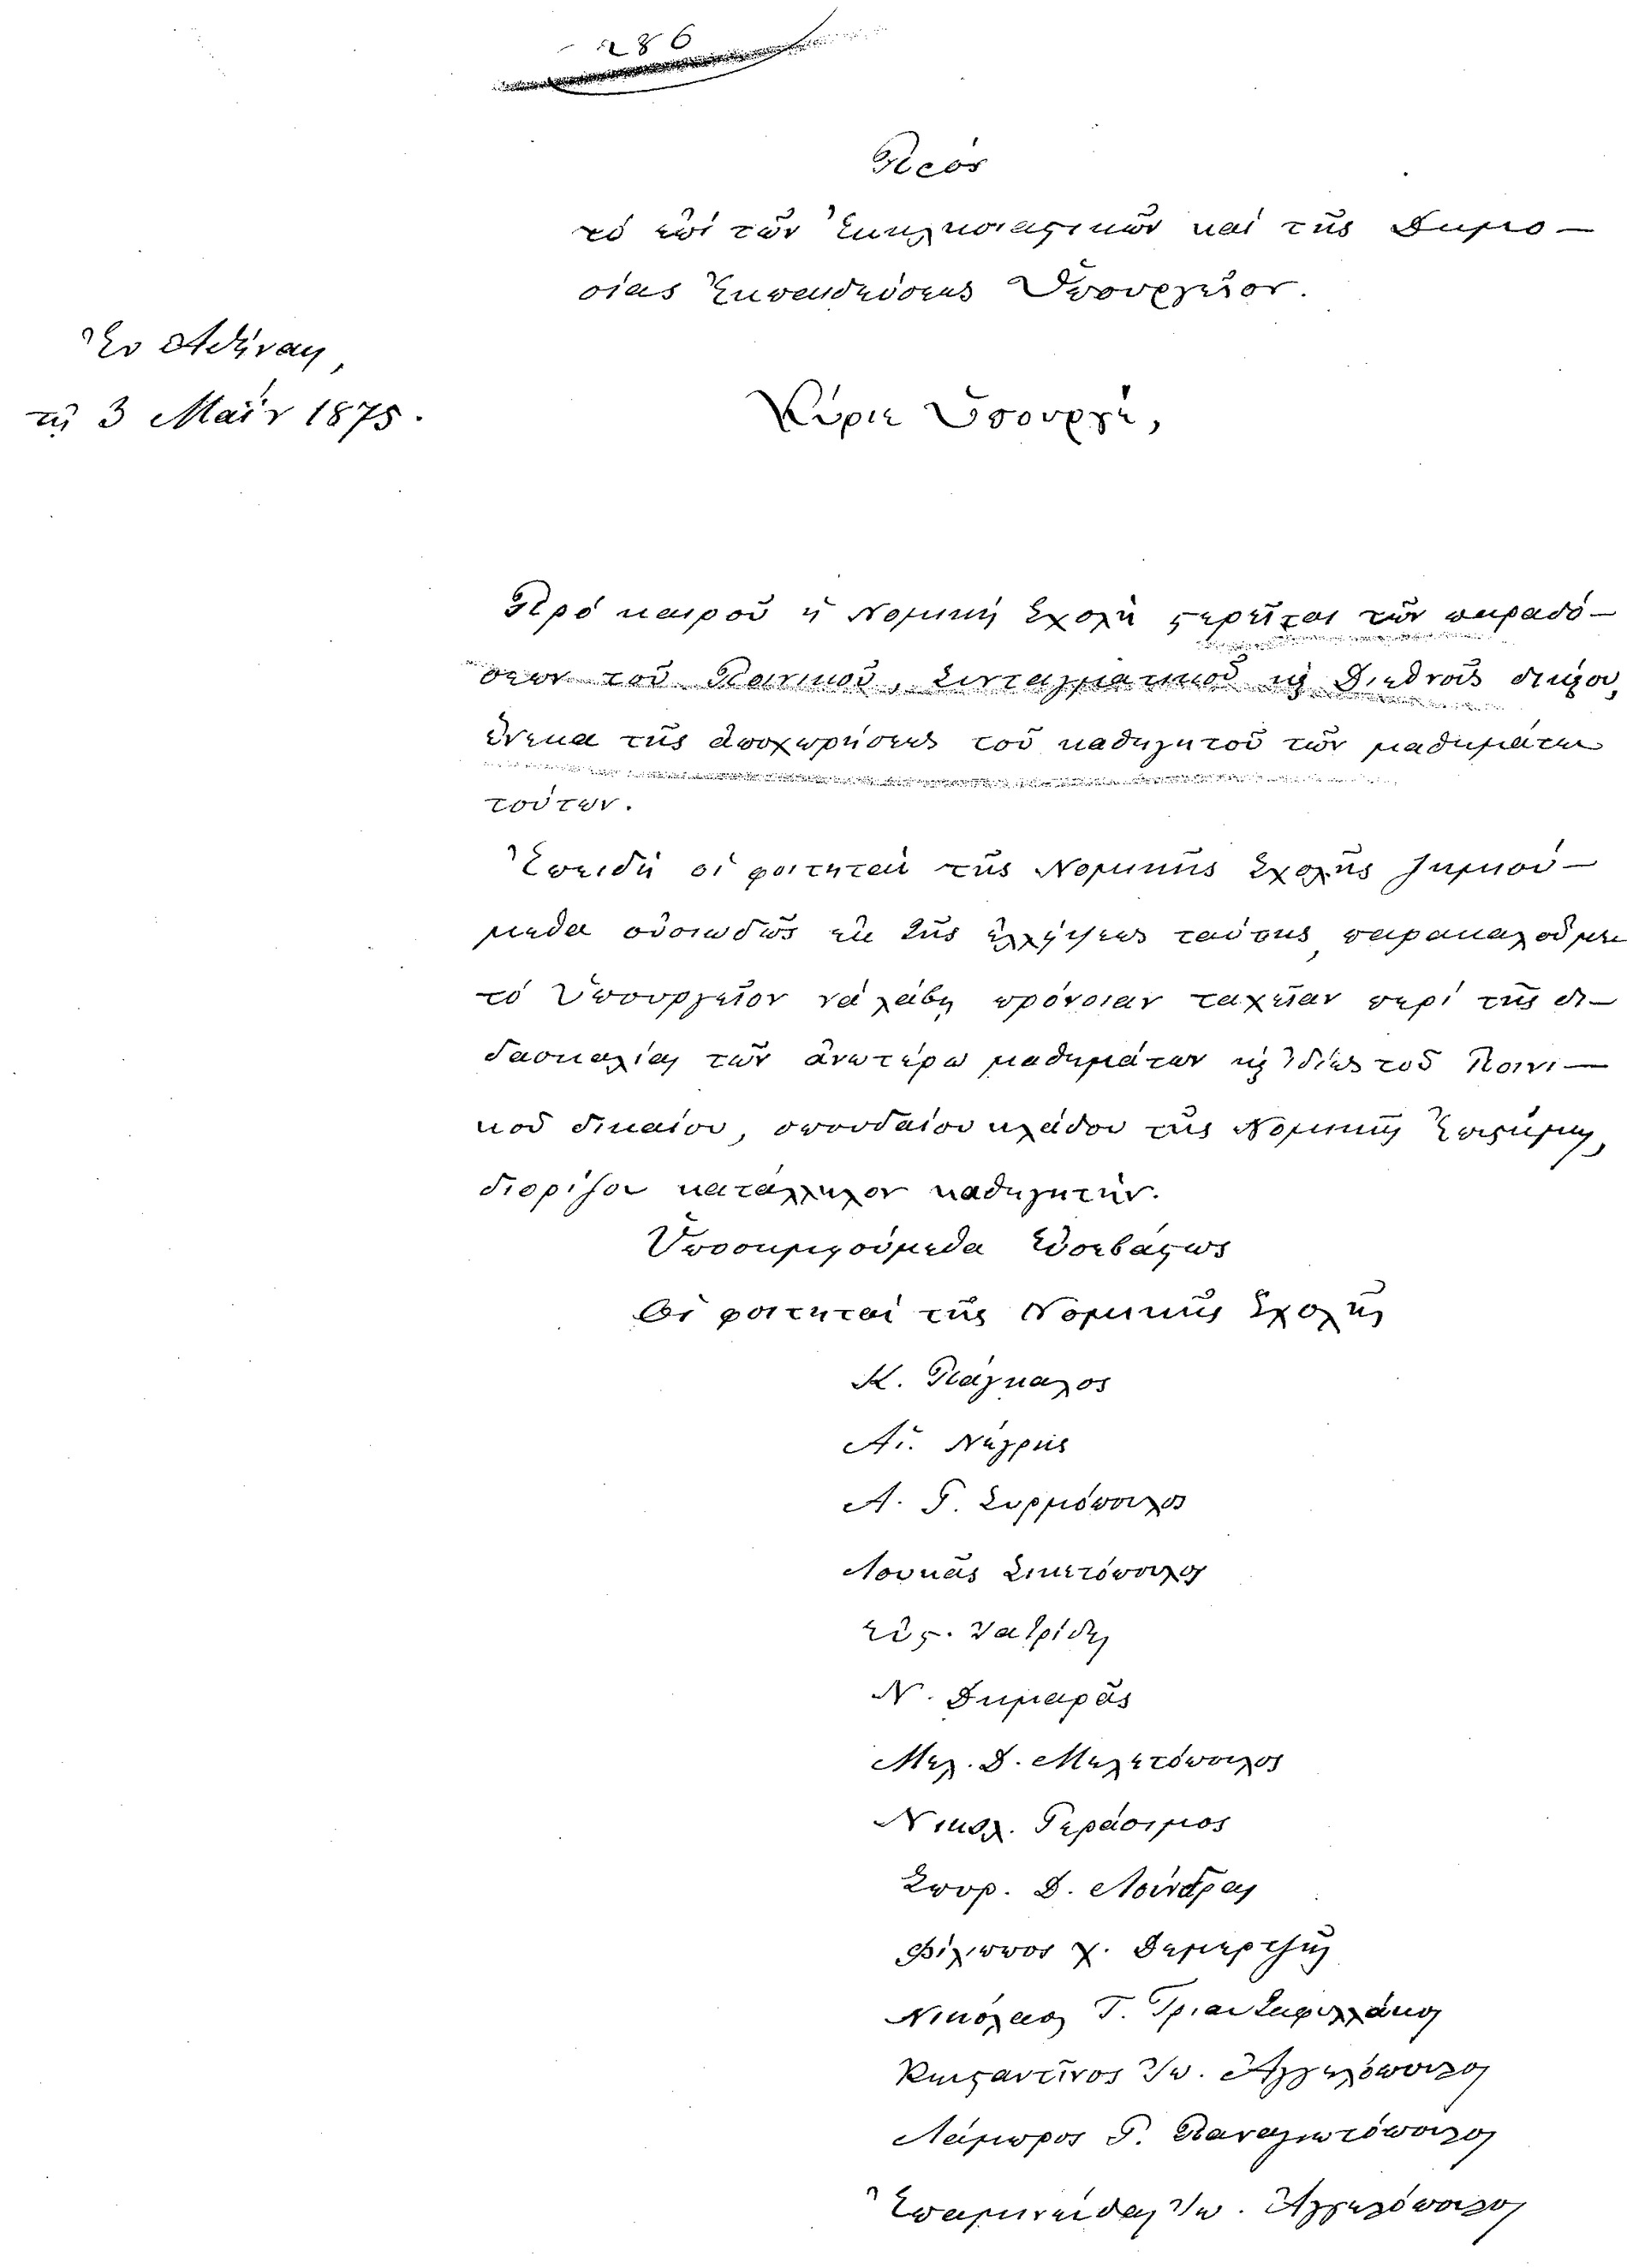 286
Πρός
τό ἐπί τῶν Ἐκκλησιαστικῶν καί τῆς Δημο-
σίας Ἐκπαιδεύσεως Ὑπουργεῖον.
Ἐν Ἀθήναις,
τῇ 3 Μαΐου 1875.
Κύριε Ὑπουργέ,
Πρό καιροῦ ἡ Νομική Σχολή στερεῖται τῶν παραδό-
σεων τοῦ Ποινικοῦ, Συνταγματικοῦ καί Διεθνοῦς δικαίου,
ἕνεκα τῆς ἀποχωρήσεως τοῦ καθηγητοῦ τῶν μαθημάτων
τούτων.
Ἐπειδή οἱ φοιτηταί τῆς Νομικῆς Σχολῆς ζημιού-
μεθα οὐσιωδῶς ἐκ τῆς ἐλλείψεως ταύτης, παρακαλοῦμεν
τό Ὑπουργεῖον νά λάβῃ πρόνοιαν ταχεῖαν περί τῆς δι-
δασκαλίας τῶν ἀνωτέρω μαθημάτων καί ἰδίως τοῦ Ποινι-
κοῦ δικαίου, σπουδαίου κλάδου τῆς Νομικῆς Ἐπιστήμης,
διορίζον κατάλληλον καθηγητήν.
Ὑποσημειούμεθα Εὐσεβάστως
Οἱ φοιτηταί τῆς Νομικῆς Σχολῆς
Κ. Πάγκαλος
Αἰ. Νέγρης
Α. Γ. Συρμόπουλος
Λουκᾶς Σικετόπουλος
Εὐστ. Ἰατρίδης
Ν. Δημαρᾶς
Μελ. Δ. Μελετόπουλος
Νικολ. Γεράσιμος
Σπυρ. Δ. Λοίνδρας
Φίλιππος Χ. Δεμερτζῆς
Νικόλαος Τ. Τριανταφυλλάκος
Κωνσταντῖνος Ἰω. Ἀγγελόπουλος
Λάμπρος Γ. Παναγιωτόπουλος
Ἐπαμινώνδας Ἰω. Ἀγγελόπουλος